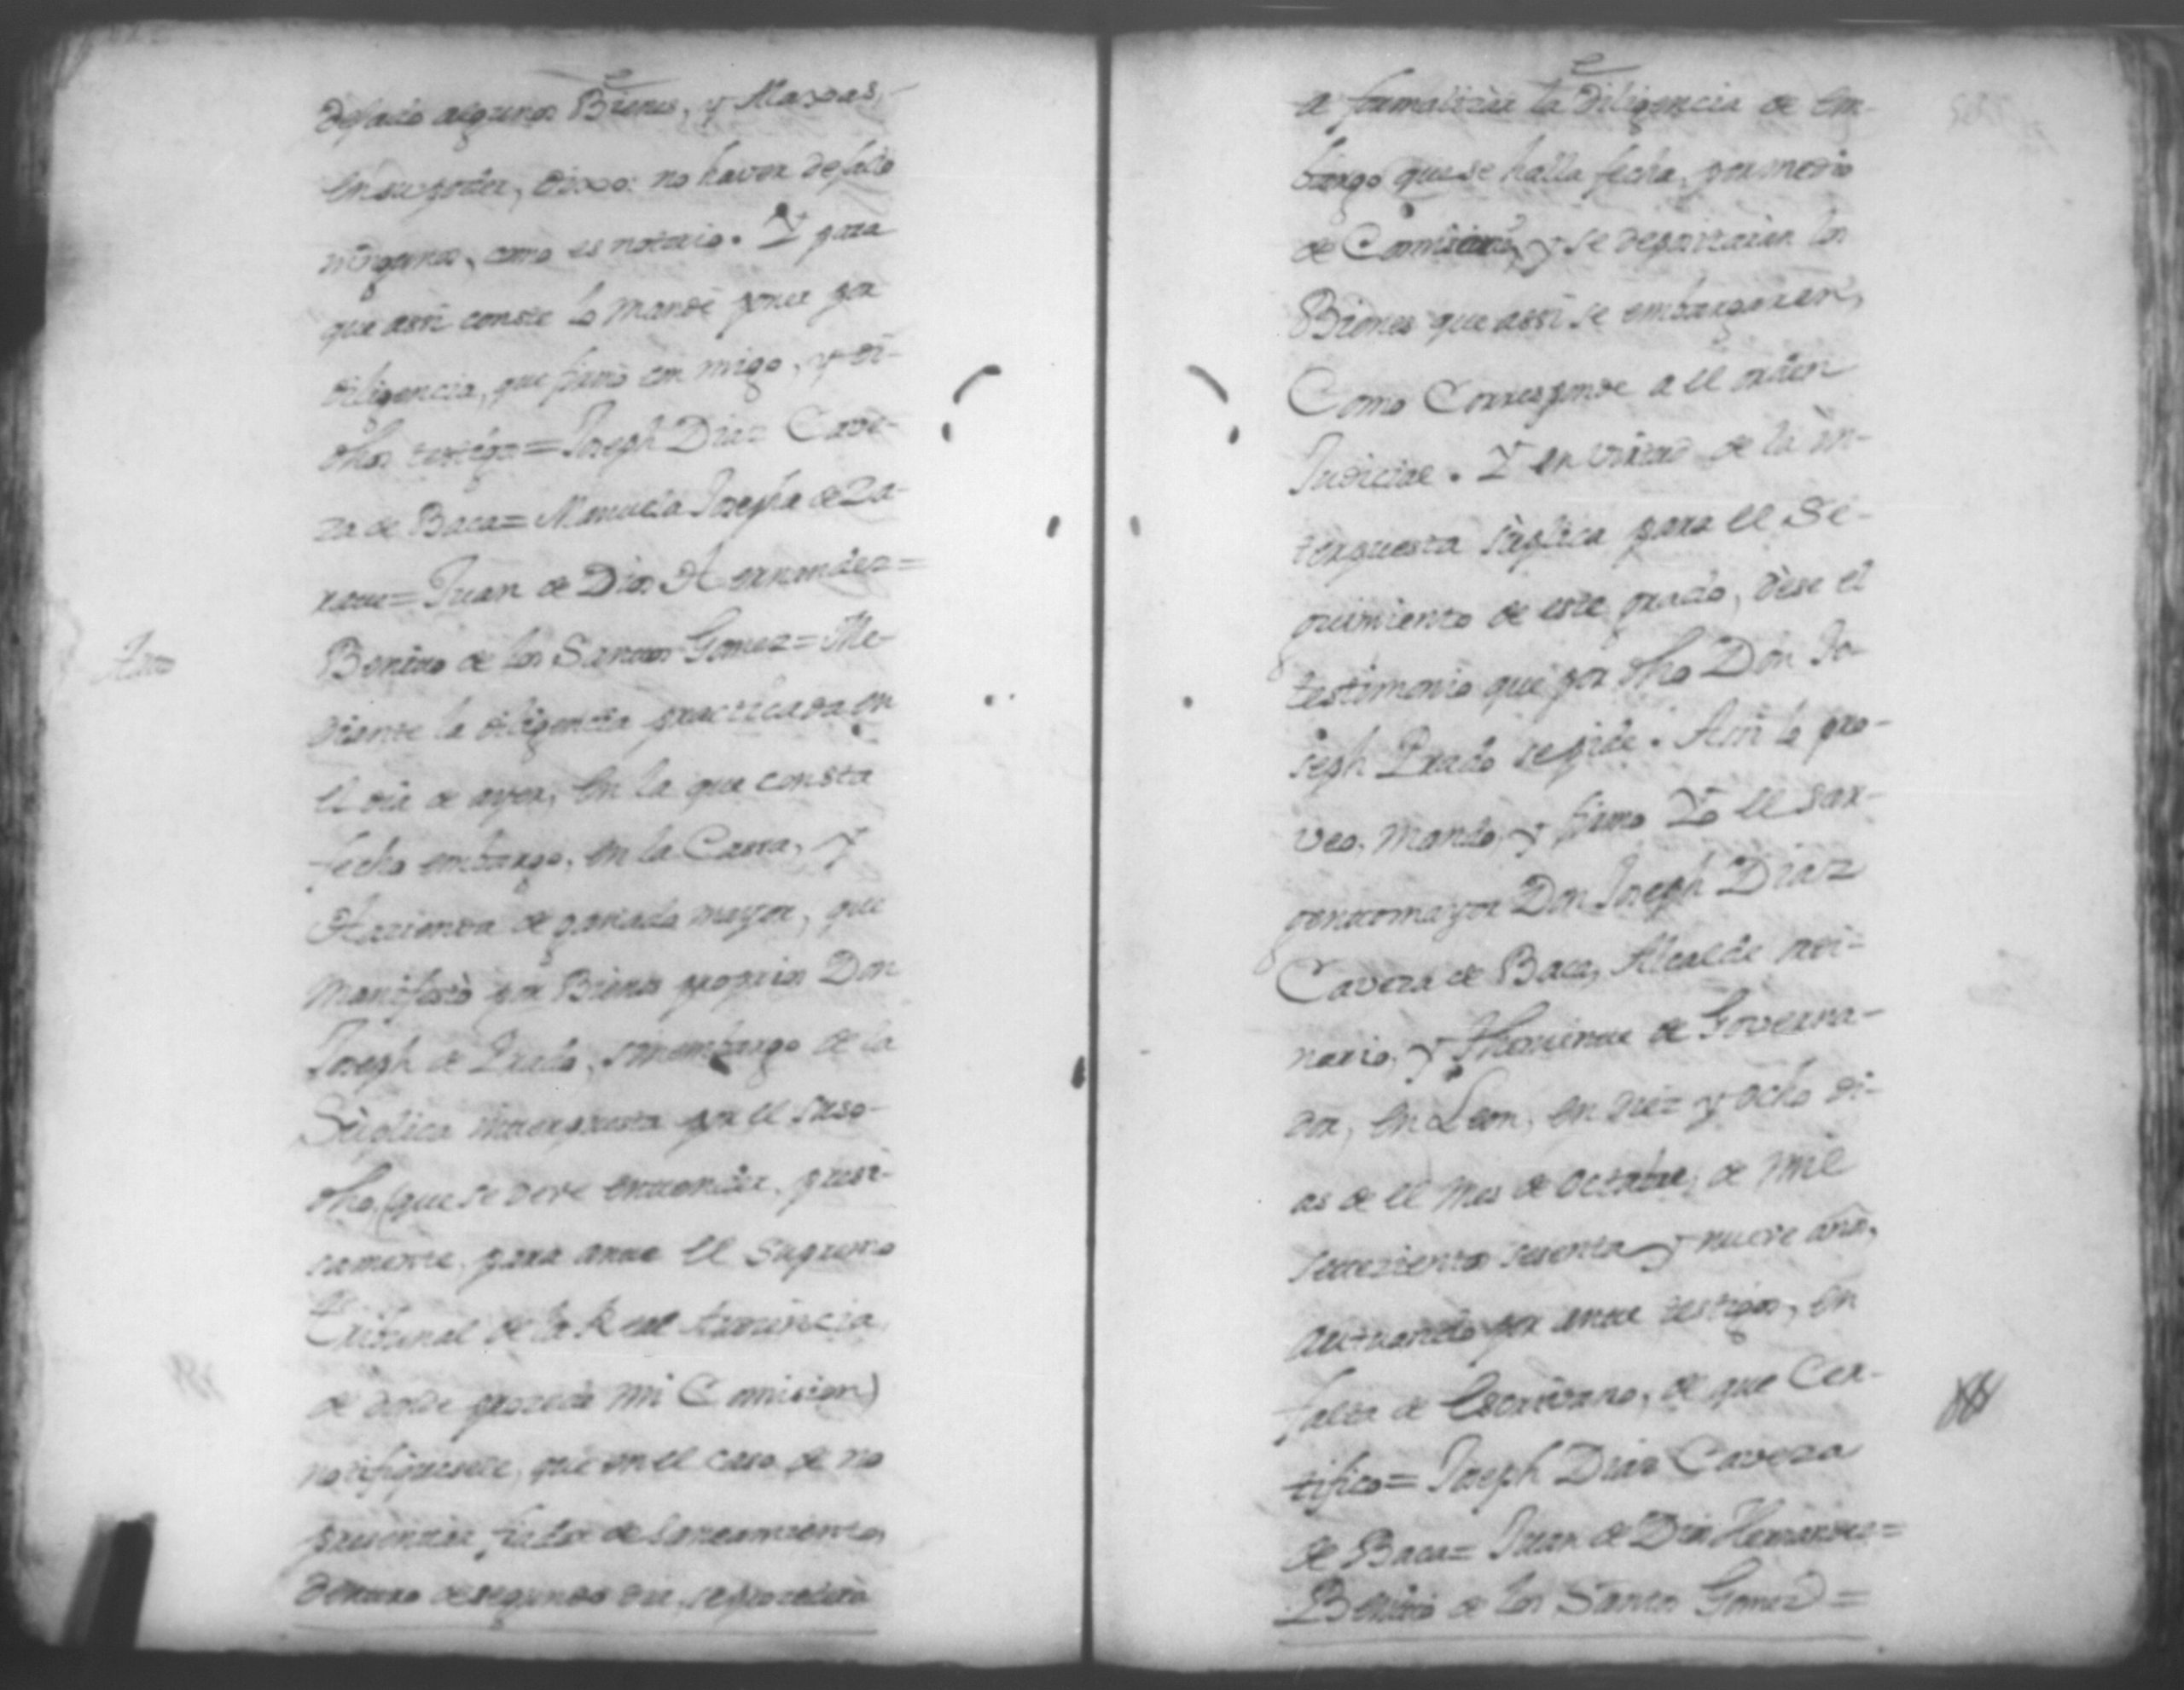 dejado algunos Bienes, y Alaxas,
en su poder, dixo: no haver dejado
ningunos, como es notorio. Y para
que assi conste lo mandè poner por
diligencia, que firmò con migo, y di-
chos testigos= Joseph Diaz Cave-
za de Baca= Manuela Josepha de Za-
rate= Juan de Dios Hernandez=
Auto
Benito de los Santos Gomez= Me-
diante la diligencia practicada en
el dia de ayer, en la que consta
fecho embargo, en la Cassa, y
Hazienda de ganado mayor, que
manifestò por Bienes proprios Don
Joseph de Prado, sin embargo de la
Sùplica interpuesta por el suso-
dho, (que se deve entender, presi-
samente, para ante el supremo
Tribunal de la Real Audiencia
de donde procede mi Comision)
notifiquesele, que en el caso de no
presentar fiador de saneamiento,
dentro de segundo dia, se procederà
a formalizar la Diligencia de em-
bargo que se halla fecha, por medio
de y se depositaràn los
Bienes que assi se embargaren,
Como Corresponde a el orden
Judicial. Y en virtud de la in-
terpuesta sùplica para el Se-
guimiento de este grado, dèse el
testimonio que por dho Don Jo-
seph Prado se pide. Assi lo pro-
veo, mando, y firmo Yo el Sar-
gentomayor Don Joseph Diaz
Caveza de Baca, Alcalde ordi-
nario, y Theniente de Governa-
dor, en Leon, en diez y ocho di-
as de el Mes de Octubre, de mil
setezientos sesenta y nueve años,
actuando por ante testigos, en
falta de Escrivano, de que Cer-
tifico= Joseph Diaz Caveza
de Baca= Juan de Dios Hernandez=
Benito de los Santos Gomez=